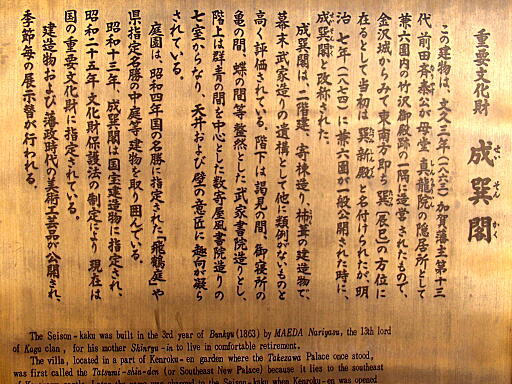 重要文化財
成巽閣
せい そん かく
この建物は、文久三年(一八六三)加賀藩主第十三
代 前田斉泰公が母堂 真龍院の隠居所として
兼六園内の竹沢御殿跡の一隅に造営されたもので、
金沢城からみて東南方即ち巽(辰巳)の方位に
在るとして当初は巽新殿と名付けられたが明
治 七年(一八七四)に兼六園が一般公開された時に、
成巽閣と改称された。
成巽閣は、二階建、寄棟造り、杮葺の建造物で、
幕末武家造りの遺構として他に類例がないものと
高く評価されている 階下は謁見の間、御寝所の
亀の間、蝶の間等 整然とした 武家書院造りとし、
階上は群青の間を中心とした数寄屋風書院造りの
七室からなり、天井および壁の意匠に趣向が凝ら
されている。
庭園は、昭和四年国の名勝に指定された「飛鶴庭」や
県指定名勝の中庭等建物を取り囲んでいる。
昭和十三年、成巽閣は国宝建造物に指定され、
昭和二十五年 文化財保護法の制定により、現在は
国の重要文化財に指定されている。
建造物および藩政時代の美術工芸品が公開され、
季節毎の展示替が行われる。
The Seison-kaku was built in the 3rd year of Bunkyu (1863) by MAEDA Nariyasu, the 13th lord
of Kaga clan, for his mother Shinryu-in to live in comfortable retirement.
The villa, located in a part of Kenroku-en garden where the Takezawa Palace once stood,
was first called the Tatsumi-shin-den (or Southeast New Palace) because it lies to the southeast
the Seison-kaku when Kenroku-en was opened